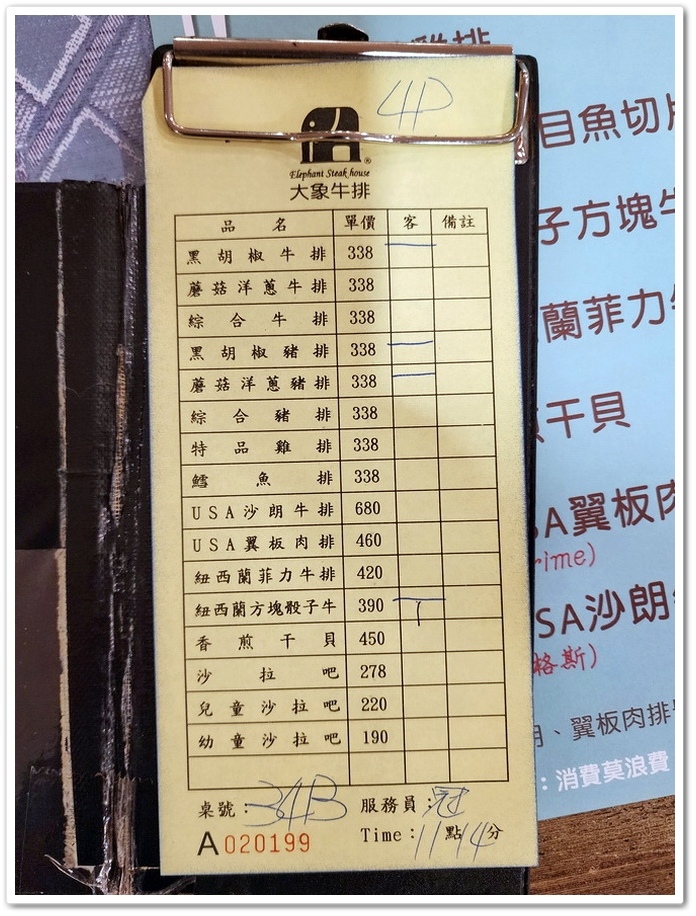 4P
Elephant Steak house
大象牛排
品名 單價 客 備註
黑胡椒牛排 338 一
蘑菇洋蔥牛排 338
綜合牛排 338
黑胡椒豬排 338 一
蘑菇洋蔥豬排 338 一
綜合豬排 338
特品雞排 338
鱈魚排 338
USA沙朗牛排 680
USA翼板肉排 460
紐西蘭菲力牛排 420
紐西蘭方塊骰子牛 390 丅
香煎干貝 450
沙拉吧 278
兒童沙拉吧 220
幼童沙拉吧 190
桌號：34B 服務員：冠
A020199 Time：11點14分
目魚切片
子方塊牛
蘭菲力牛
干貝
SA翼板肉
rime)
SA沙朗
格斯)
、翼板肉排
：消費莫浪費